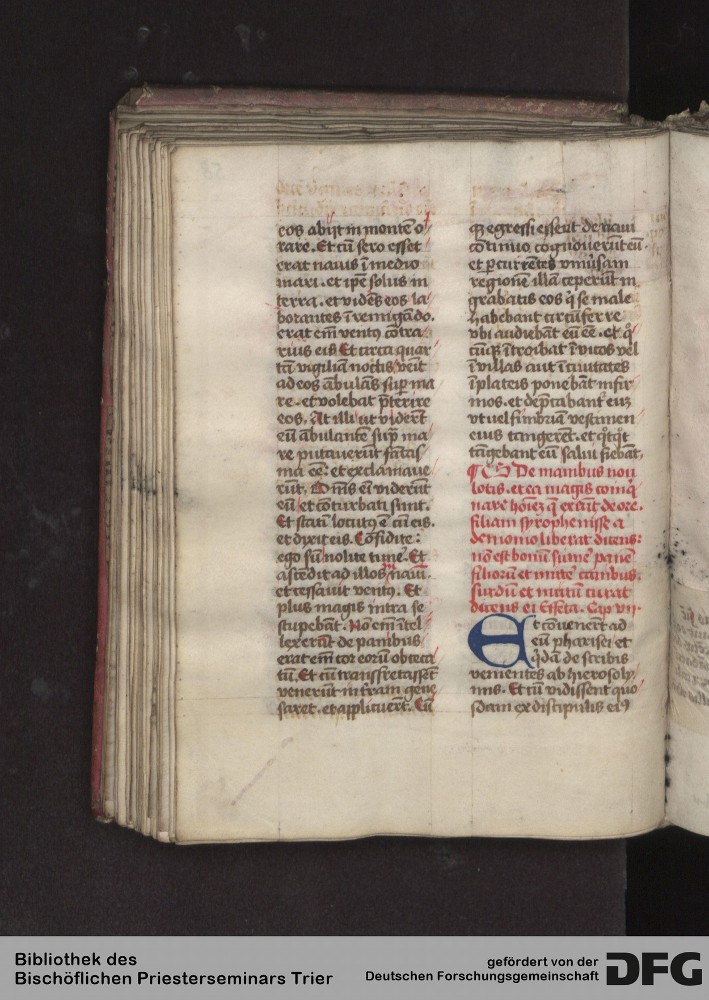 eos abijt in montē o
rare. Et cū sero esset
erat nauis ī medio
mari. et ip̄e solus in
terra. et vidēs eos la
borantes ī remigādo.
erat em̄ ventꝰ cōtra
rius eis Et circa quar
tā vigiliam noctis venit
ad eos ābulās suꝑ ma
re. et volebat p̄terire
eos. At illi ut viderēt
eū ābulantē suꝑ ma
re putauerūt fātas
ma eē: et exclamaue
rūt. Om̄s eī viderūt
eū et cōturbati sunt.
Et statī locutꝰ ē cū eis.
et dixit eis. Cōfidite:
ego sū nolite timē. Et
ascēdit ad illos ī nauī.
et cessauit ventꝰ. Et
plus magis intra se
stupebāt. Nō em̄ ītel
lexerūt de panibus
erat em̄ cor eorū obceca
tū. Et cū transfretassēt
venerūt in terram gene
saret. et applicuerūt. Cū
qꝫ egressi essent de naui
cōtinuo cognouerūt eū.
et ꝑcurrētes vniuersam
regionē illā ceperūt in
grabatis eos qͥ se male
habebant circūferre
vbi audiebāt eū eē. et qͦ
cūqꝫ ītroibat ī vicos vel
ī villas aut ī ciuitates
ī plateis ponebāt infir
mos. et dep̄cabant eū
vt vel fimbriā vestimen
eius tangerēt. et qͦtqͦt
tāgebant eū salui fiebāt.
De manibus non
lotis. et ea magis coinqͥ
nare hoīeꝫ q̄ exeūt de ore.
filiam syrophenisse a
demonio liberat dicens:
nō est bonū sumē panē
filiorū et mittē canibus.
surdū et mutū curat
dicens ei Effeta. Cap vij
Et cōuenerūt ad
eū pharisei et
qͥdā de scribis
venientes ab hierosoly
mis. Et cū vidissent quo
sdam ex discipulis eiꝰ
Bibliothek des
Bischöflichen Priesterseminars Trier
gefördert von der
Deutschen Forschungsgemeinschaft
DFG